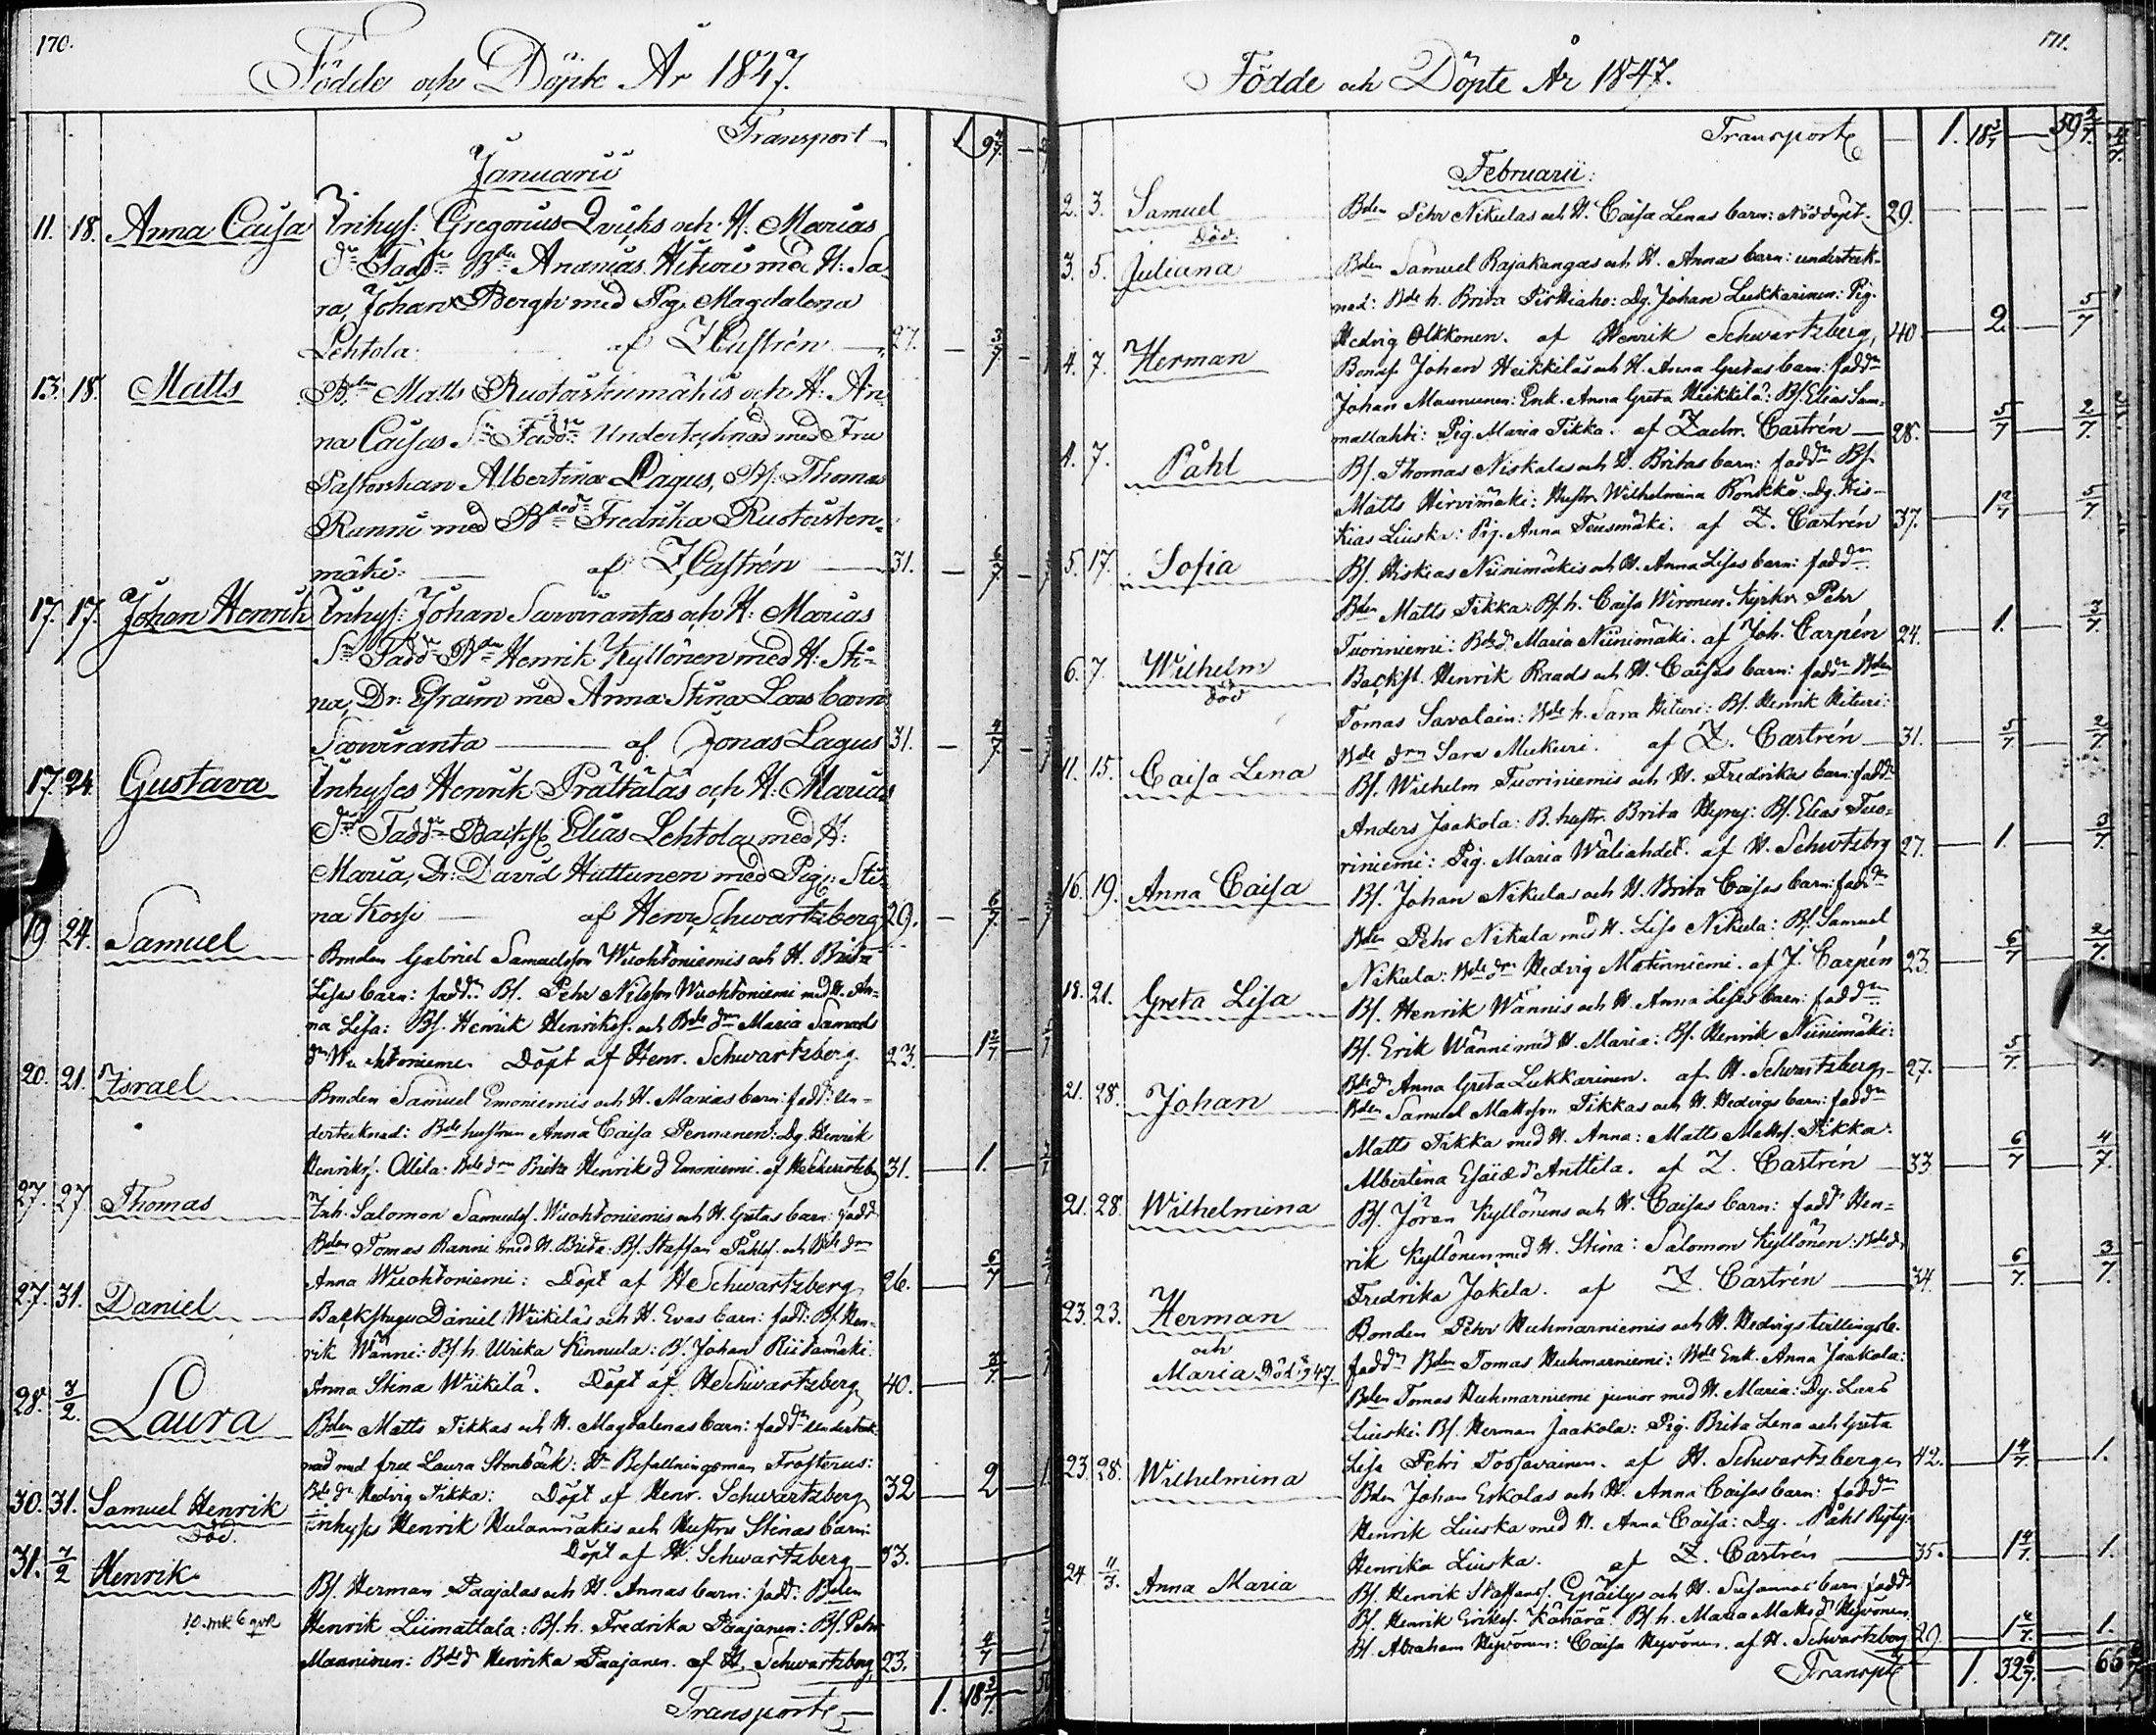 170.
Födde och Döpte År 1847.
Transport 1 9 4/7
Januarii
11. 18. Anna Caisa Inhys: Gregorius och H. Marias
Dr Faddr Bdn Ananias Hituri med H: Sa-
ra, Johan Bergh med Pig. Magdalena
Lehtola. af Z Castrén 27. 3/7
13. 18. Matts Bdn Matts Ruotoistenmäkis och H: An-
na Caisas Sn Faddr: Undertecknad med Fru
Pastorskan Albertina Lagus, Bs. Thomas
Ranni med Fredrika Ruotoisten-
mäki. af Z Castrén 31. 6/7
17. 17. Johan Henrik Inhys: Johan Savirantas och H: Marias
Sn Faddr Bdn Henrik Kyllönen med H: Sti-
na, Dr: Efraim med Anna Stina Lars barn
Saviranta af Jonas Lagus 31. 4/7
17 24 Gustava Inhyses Henrik Prättäläs och H: Marias
Dr Faddr Elias Lehtola med H:
Maria, Dr: David Huttunen med Pig: Sti-
na Kossi af Henr. Schwartzberg 29. 6/7
19 24. Samuel Bonden Gabriel Samuelsson Wuohtoniemis och H. Brita
Lisas barn: faddr Bs. Pehr Nilsson Wuohtoniemi med H. An-
na Lisa: Bs. Henrik Henriks. och Bde dr Maria Samuels
dr Wuohtoniemi. Döpt af Henr. Schwartzberg 23. 1 2/7
20. 21. Israel Bonden Samuel Emoniemis och H. Marias barn: fadd: Un-
dertecknad: Bde hustrun Anna Caisa Pennanen: Dg. Henrik
Henriks. Ollila: Bde dr Brita Henriks d Emoniemi. af H Schwartzbg 31. 1.
27. 27 Thomas Inh. Salomon Samuels. Wuohtoniemis och H. Gretas barn: fadd
Bden Tomas Ranni med H. Brita: Bs. Staffan Påhls. och Bde dr
Anna Wuohtoniemi: Döpt af H Schwartzberg 26. 6/7
27. 31. Daniel Backstugu Daniel Wiikiläs och H. Evas barn: fadd: Bs. Hen-
rik Wänni: Bs h. Ulrika Kinnula: Bs. Johan Riitamäki:
Anna Stina Wiikilä. Döpt af H Schwartzberg 40. 3/7
28. 3/2. Laura Bden Matts Tikkas och H. Magdalenas barn: faddr Underteck-
nad med fru Laura Stenbäck: Hr Befallningsman Frosterus:
Bde dr Hedvig Tikka: Döpt af Henr. Schwartzberg 32 2
30. 31. Samuel Henrik Inhyses Henrik och Hustru Stinas barn:
Död. Döpt af H. Schwartzberg 33.
31. 7/2 Henrik Bs. Herman Paajalas och H. Annas barn: fadd: Bden
Henrik Liimattala: Bs. h. Fredrika Paajanen: Bs. Pehr
Manninen: Bde d Henrika Paajanen. af H. Schwartzberg 23. 4/7
Transport 1. 18 3/7
171.
Födde och Döpte År 1847.
Transport 1. 18 3/7 59 2/7
Februarii:
2. 3. Samuel Bden Pehr Nikulas och H. Caisa Lenas barn: Nöddöpt. 29.
Död.
3. 5. Juliana Bden Samuel Rajakangas och H. Annas barn: underteck-
nad: Bde h. Brita Pirttiaho: Dg. Johan Lukkarinen: Pig.
Hedvig Olkkonen. af Henrik Schwartzberg, 40 2 5/7
4. 7. Herman Bonas. Johan Heikkiläs och H. Anna Gretas barn: faddr
Johan Maununen: Enk. Anna Greta Heikkilä: Bs. Elias Sam-
mallahti: Pig. Maria Tikka. af Zachr. Castrén 28. 5/7 2/7
4. 7. Påhl Bs. Thomas Niskalas och H. Britas barn: faddr Bs.
Matts Hirvimäki: Hustr. Wilhelmina Könkkö: Dg. His-
kias Liuska: Pig. Anna Teusmäki. af Z. Castrén 37. 1 2/7 5/7
5. 17. Sofia Bs. Hiskias Niinimäkis och H. Anna Lisas barn: faddr
Bden Matts Tikka: Bs h. Caisa Wironen. Kyrkv. Pehr
Tuoriniemi: Bde d Maria Niinimäki. af Joh. Carpén 24. 1. 3/7
6. 7. Wilhelm Backst. Henrik Raads och H. Caisas barn: faddr Bden
död Tomas Savolain: Bde h. Sara Hituri: Bs. Henrik Hituri:
Bde drn Sara Mukuri. af Z. Castrén 31. 5/7 2/7
11. 15. Caisa Lena Bs. Wilhelm Tuoriniemis och H. Fredrikas barn: faddr
Anders Jaakola: B. hustr. Brita: Bs. Elias Tuo-
riniemi: Pig. Maria Wäliahdet. af H. Schwtzbrg 27. 1. 3/7
16. 19. Anna Caisa Bs. Johan Nikulas och H. Brita Caisas barn: faddr
Bden Pehr Nikula med H. Lisa Nikula: Bs. Samuel
Nikula: Bde dr Hedvig Matinniemi. af J. Carpén 23. 6/7 2/7
18. 21. Greta Lisa Bs. Henrik Wännis och H. Anna Lisas barn: faddr
Bs. Erik Wänni med H. Maria: Bs. Henrik Niinimäki:
Bde d Anna Greta Lukkarinen. af H. Schwartzberg 27. 5/7
21. 28. Johan Bden Samuel Mattsson Tikkas och H. Hedvigs barn: faddr
Matts Tikka med H. Anna: Matts Matts. Tikka.
Albertina Esaiæ d Anttila. af Z. Castrén 33 6/7 4/7
21. 28. Wilhelmina Bs. Jöran Kyllönens och H. Caisas barn: fadd: Hen-
rik Kyllönen med H. Stina: Salomon Kyllönen: Bde d
Fredrika Jokela. af Z. Castrén 34. 6/7. 3/7.
23. 23. Herman Bonden Pehr Huhmarniemis och H. Hedvigs tvillingsb.
och faddr Bden Tomas Huhmarniemi: Bde Enk. Anna Jaakola:
Maria Död Bden Tomas Huhmarniemi junior med H. Maria: Dg. Lars
Liuski: Bs. Herman Jaakola: Pig. Brita Lena och Greta
Lisa Petri Toosavainen. af H. Schwartzberg 42. 1 4/7. 1.
23. 28. Wilhelmina Bden Johan Erkolas och H. Anna Caisas barn: faddr
Henrik Liuska med H. Anna Caisa: Dg. Påhl
Henrika Liuska. af Z. Castrén 35. 1 4/7. 1.
24 4/3. Anna Maria Bs. Henrik Staffans. Epäilys och H. Susannas barn: fadd:
Bs. Henrik Eriks. Känärä: Bs. h. Maria Matts d Hyvönen
Bs. Abraham Hyvönen: Caisa Hyvönen. af H. Schwartzberg 29 1 4/7. 1.
Transpt 1. 32